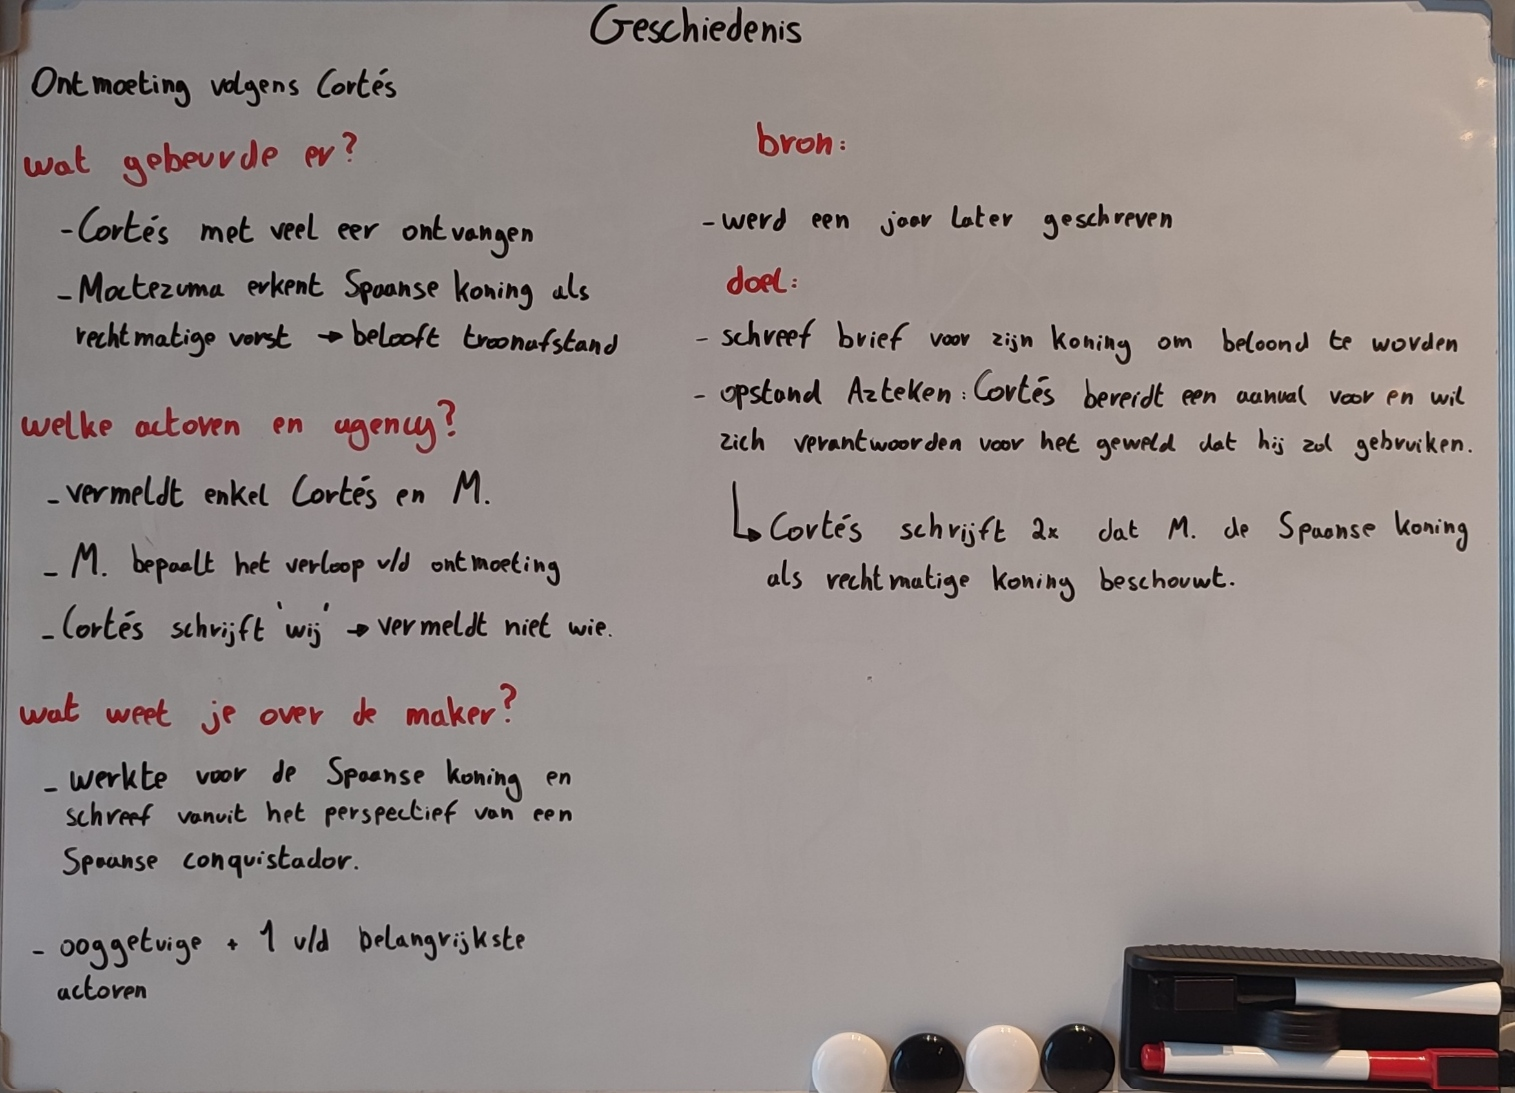 Geschiedenis
Ontmoeting volgens Cortés
wat gebeurde er?
- Cortés met veel eer ontvangen
- Moctezuma erkent Spaanse koning als
rechtmatige vorst → belooft troonafstand
welke actoren en agency?
- vermeldt enkel Cortés en M.
- M. bepaalt het verloop v/d ontmoeting
- Cortés schrijft 'wij' → vermeldt niet wie.
wat weet je over de maker?
- werkte voor de Spaanse koning en
schreef vanuit het perspectief van een
Spaanse conquistador.
- ooggetuige + 1 v/d belangrijkste
actoren
bron:
- werd een jaar later geschreven
doel:
- schreef brief voor zijn koning om beloond te worden
- opstand Azteken: Cortés bereidt een aanval voor en wil
zich verantwoorden voor het geweld dat hij zal gebruiken.
↳ Cortés schrijft 2x dat M. de Spaanse koning
als rechtmatige koning beschouwt.